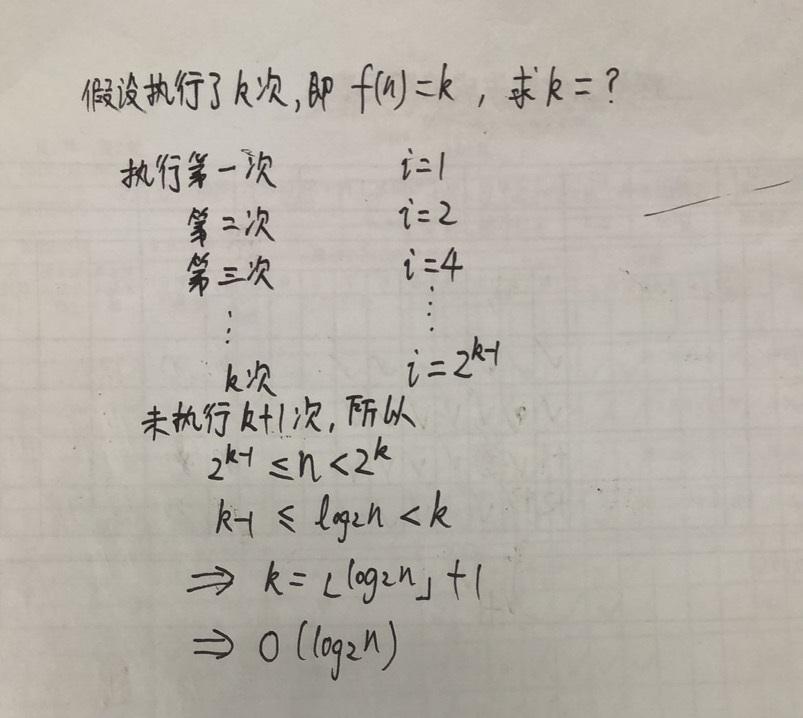 假设执行了k次,即 f(n)=k , 求k=?
执行第一次 i=1
第二次 i=2
第三次 i=4
⋮ ⋮
k次 i=2^{k-1}
未执行k+1次,所以
2^{k-1} ≤ n < 2^k
k-1 ≤ log₂n < k
⇒ k=⌊log₂n⌋+1
⇒ O(log₂n)